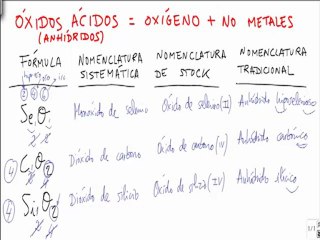 ÓXIDOS ÁCIDOS = OXÍGENO + NO METALES
(ANHÍDRIDOS)
FÓRMULA NOMENCLATURA SISTEMÁTICA NOMENCLATURA DE STOCK NOMENCLATURA TRADICIONAL
2 4 6
Se₁O₁ Monóxido de selenio Óxido de selenio (II) Anhídrido hiposelenioso
4 C₁O₂ Dióxido de carbono Óxido de carbono (IV) Anhídrido carbónico
4 Si₁O₂ Dióxido de silicio Óxido de silicio (IV) Anhídrido silícico